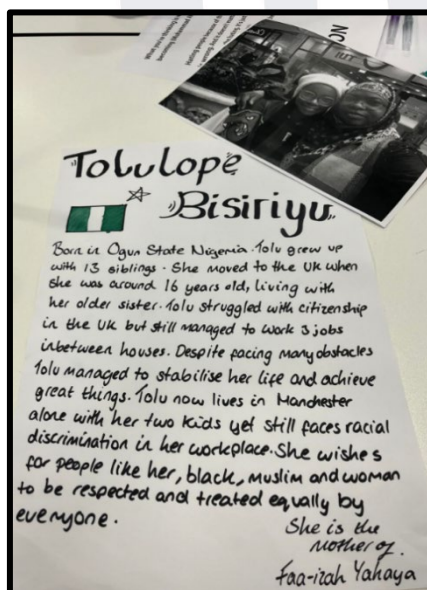 Tolulope
Bisiriyu
Born in Ogun State Nigeria. Tolu grew up
with 13 siblings. She moved to the UK when
she was around 16 years old, living with
her older sister. Tolu struggled with citizenship
in the UK but still managed to work 3 jobs
inbetween houses. Despite facing many obstacles
Tolu managed to stabilise her life and achieve
great things. Tolu now lives in Manchester
alone with her two kids yet still faces racial
discrimination in her workplace. She wishes
for people like her, black, muslim and woman
to be respected and treated equally by
everyone.
She is the
mother of.
Faa-izah Yahaya